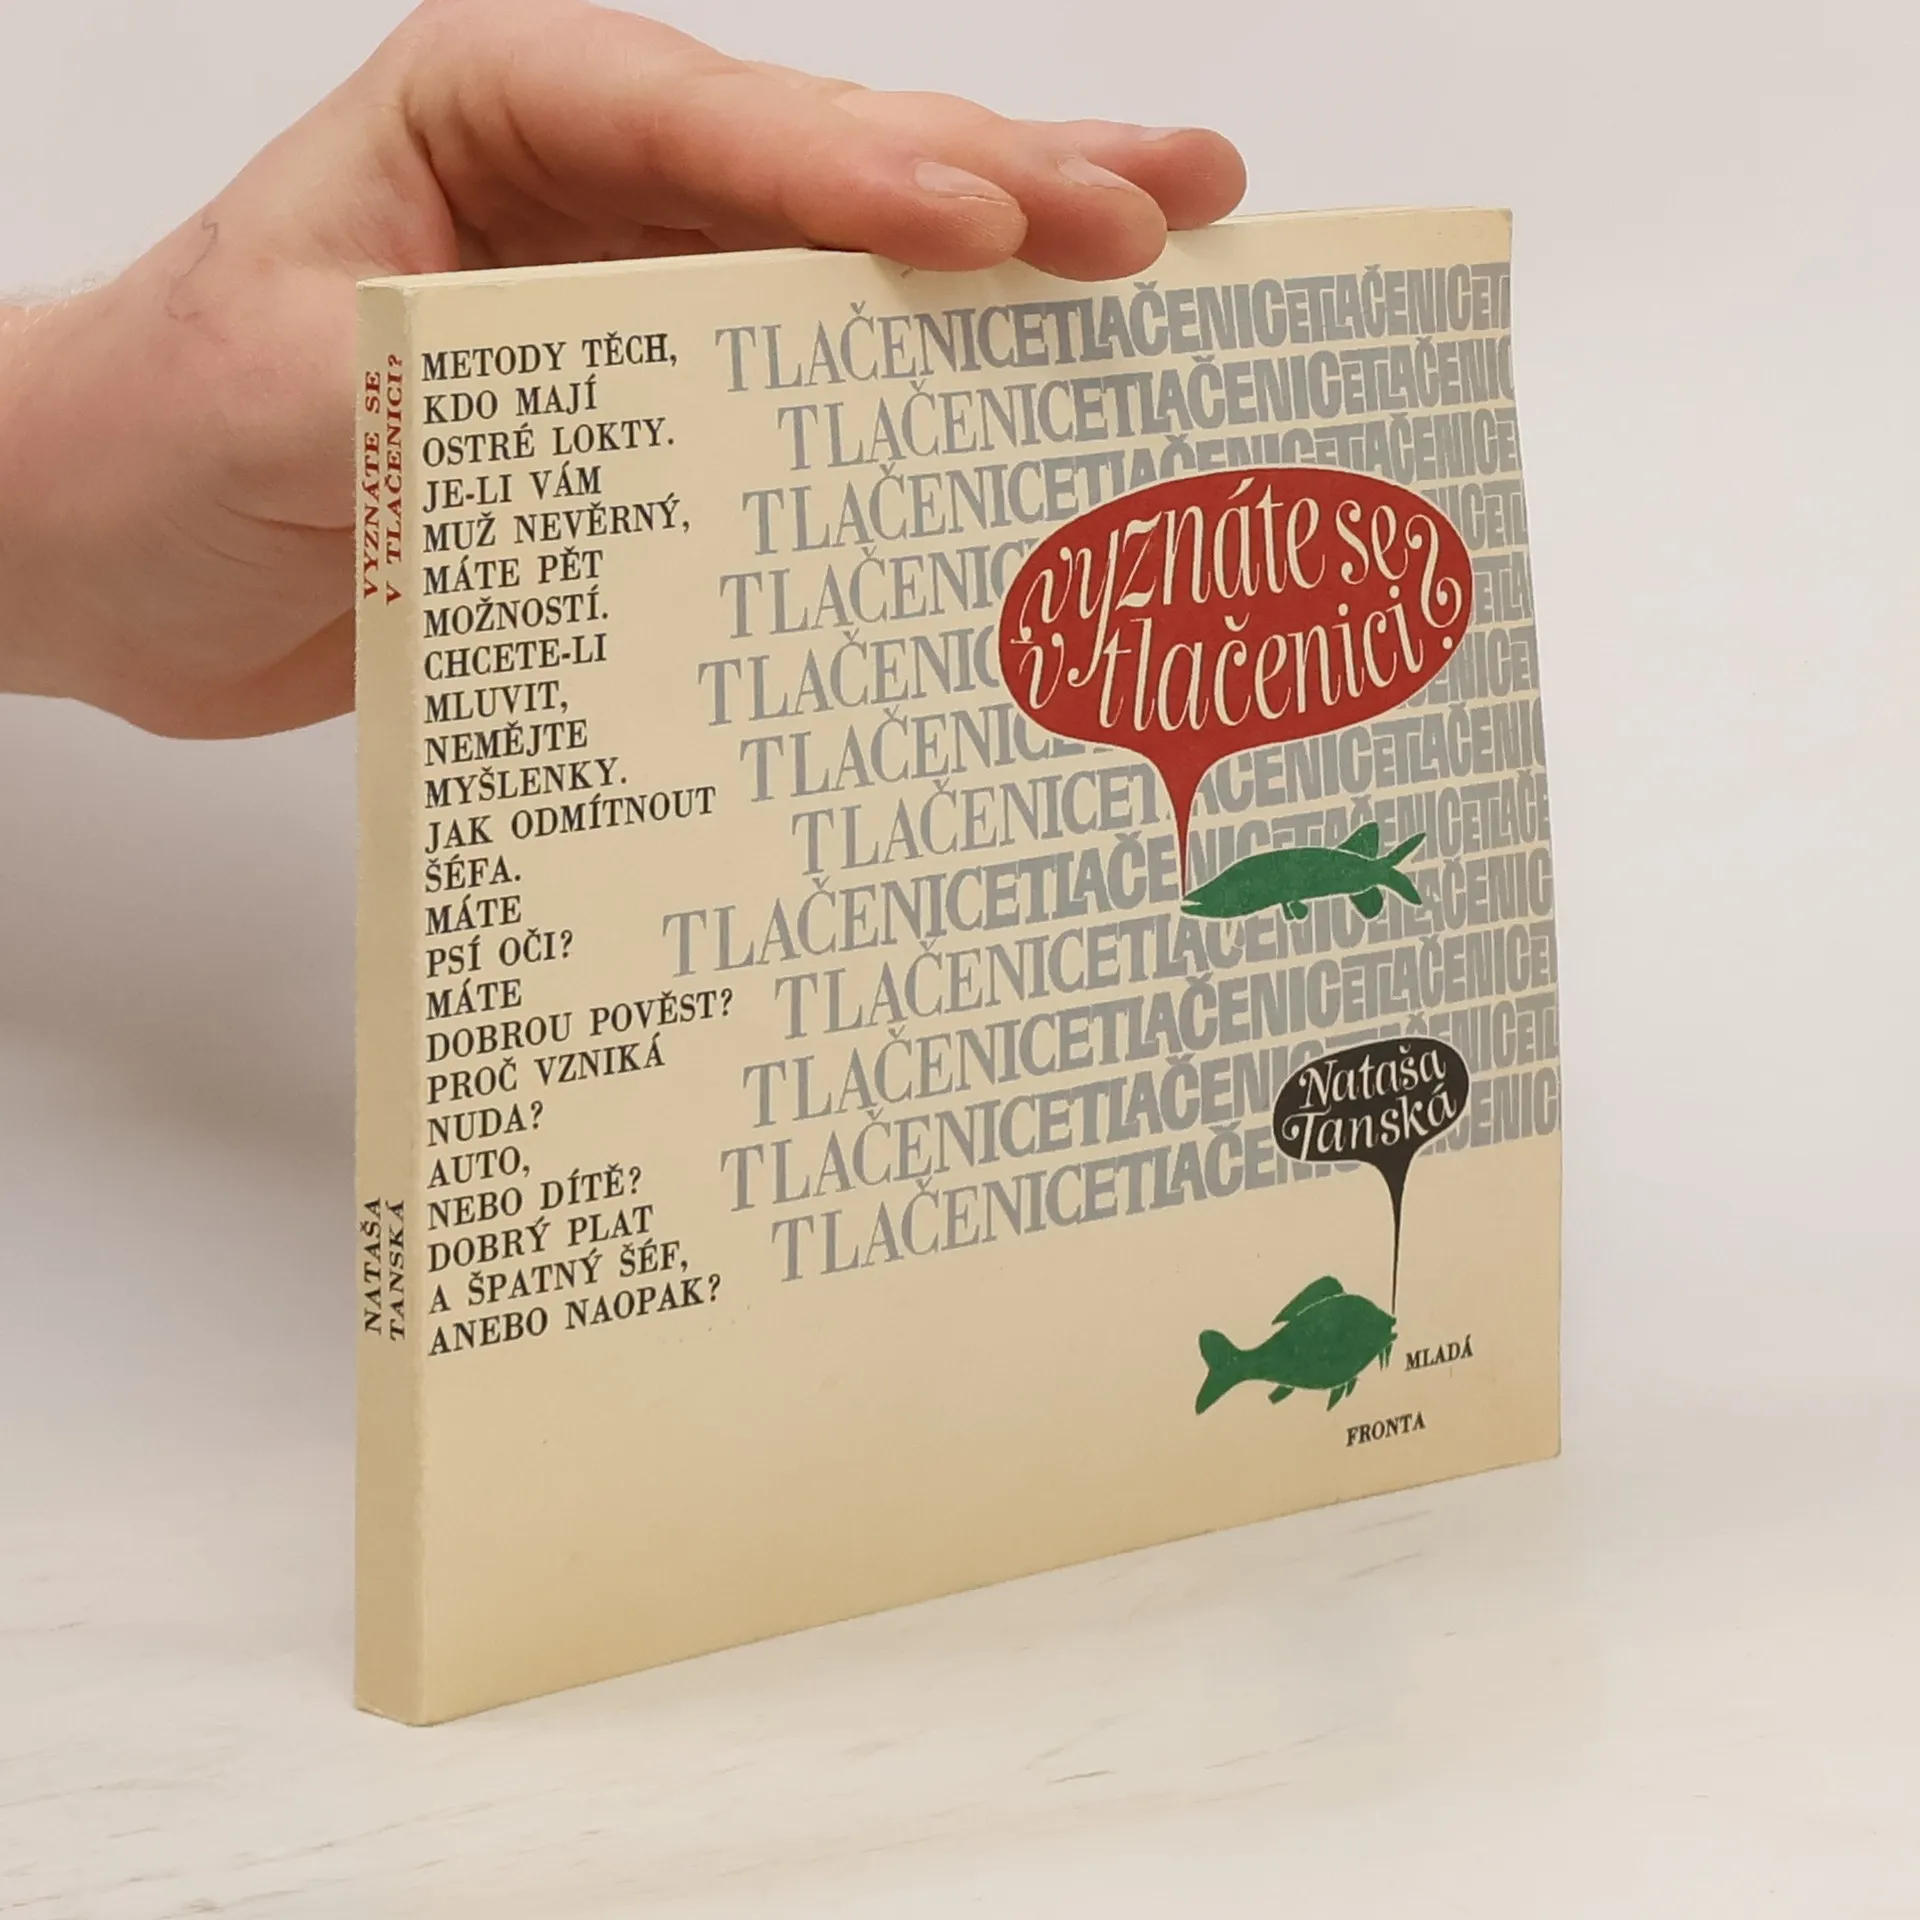 VYZNÁTE SE
V TLAČENICI?
NATAŠA
TANSKÁ
METODY TĚCH,
KDO MAJÍ
OSTRÉ LOKTY.
JE-LI VÁM
MUŽ NEVĚRNÝ,
MÁTE PĚT
MOŽNOSTÍ.
CHCETE-LI
MLUVIT,
NEMĚJTE
MYŠLENKY.
JAK ODMÍTNOUT
ŠÉFA.
MÁTE
PSÍ OČI?
MÁTE
DOBROU POVĚST?
PROČ VZNIKÁ
NUDA?
AUTO,
NEBO DÍTĚ?
DOBRÝ PLAT
A ŠPATNÝ ŠÉF,
ANEBO NAOPAK?
TLAČENICETLAČENICETLAČENICETL
TLAČENICETLAČENICETLAČENIC
TLAČENICETLAČENICETLAČENICE
TLAČENIC
TLAČENIC
TLAČENICE
TLAČENICETLAČENICETLAČENIC
TLAČENICETLAČENICETLAČENICETLAČE
TLAČENICETLAČENICETLAČENIC
TLAČENICETLAČENICETLAČENICE
TLAČENICETLAČENICETL
TLAČENICETLAČENICE
vyznáte se
v tlačenici?
Nataša
Tanská
MLADÁ
FRONTA